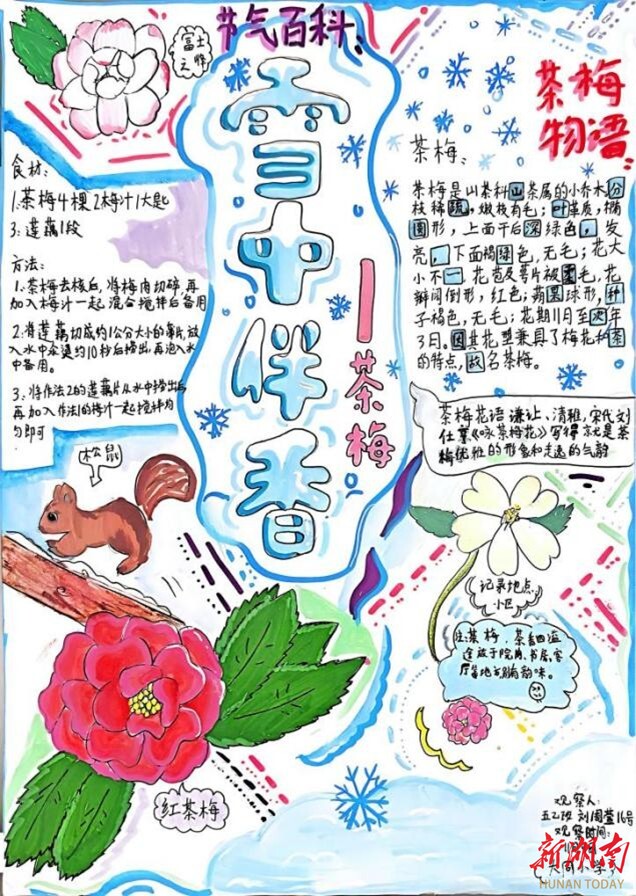 节气百科:
富士之峰
雪中伴香
—茶梅
茶梅
物语:
食材:
1:茶梅4棵 2梅汁1大匙
3:莲藕1段
方法:
1:茶梅去核后,将梅肉切碎,再
加入梅汁一起混合搅拌后备用
2:将莲藕切成约1公分大小的薄片,放
入水中汆烫约10秒后捞出,再泡入水
中备用。
3:将作法2的莲藕片从水中捞出后
再加入作法1的梅汁一起搅拌均
匀即可
茶梅:
茶梅是山茶科山茶属的小乔木,分
枝稀疏,嫩枝有毛;叶革质,椭
圆形,上面干后深绿色,发
亮,下面褐绿色,无毛;花大
小不一,花苞及萼片被柔毛,花
瓣阔倒形,红色;蒴果球形,种
子褐色,无毛;花期11月至次年
3日。因其花型兼具了梅花和茶
的特点,故名茶梅。
茶梅花语 谦让、清雅,宋代刘
仕亨《咏茶梅花》写得就是茶
梅优雅的形象和
的气韵
松鼠
记录地点:
小区
注:茶梅,茶
适放于院内、书房、客
厅等地方别有韵味。
红茶梅
观察人:
五乙班 刘周萱16号
观察时间:
大同小学
新湖南
HUNAN TODAY